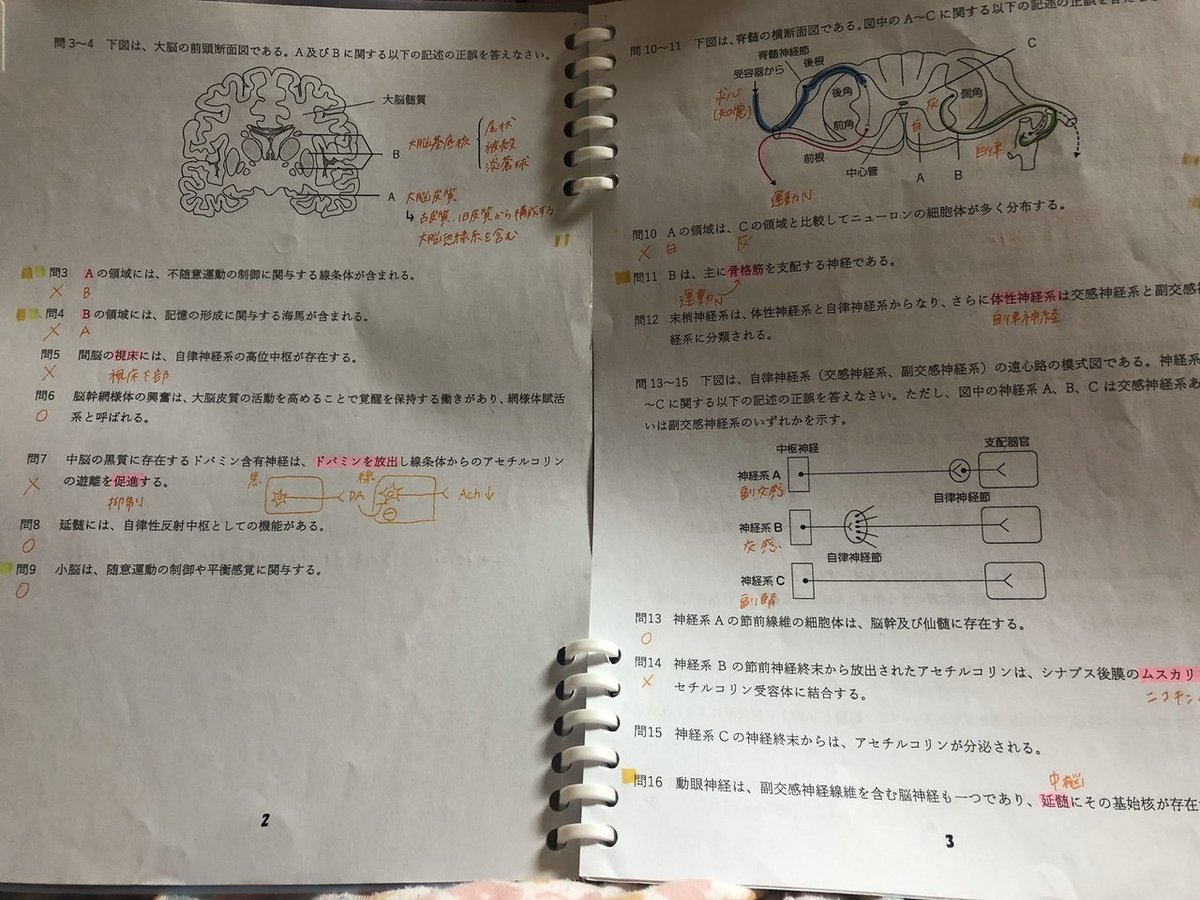 問3～4 下図は、大脳の前頭断面図である。A及びBに関する以下の記述の正誤を答えなさい。
大脳髄質
B 大脳基底核
尾状
被殻
淡蒼球
A 大脳皮質
↳ 古皮質、旧皮質から構成する
大脳辺縁系を含む
問3 Aの領域には、不随意運動の制御に関与する線条体が含まれる。
× B
問4 Bの領域には、記憶の形成に関与する海馬が含まれる。
× A
問5 間脳の視床には、自律神経系の高位中枢が存在する。
× 視床下部
問6 脳幹網様体の興奮は、大脳皮質の活動を高めることで覚醒を保持する働きがあり、網様体賦活
○ 系と呼ばれる。
問7 中脳の黒質に存在するドパミン含有神経は、ドパミンを放出し線条体からのアセチルコリン
× の遊離を促進する。
抑制
黒 DA 線 ⊖ Ach↓
問8 延髄には、自律性反射中枢としての機能がある。
○
問9 小脳は、随意運動の制御や平衡感覚に関与する。
○
2
問10～11 下図は、脊髄の横断面図である。図中のA～Cに関する以下の記述の正誤を答えな
脊髄神経節
後根
C
受容器から
求心
(知覚)
後角
灰
側角
前角
白
前根
中心管
A
B
自律
運動N
問10 Aの領域は、Cの領域と比較してニューロンの細胞体が多く分布する。
× 白 灰
問11 Bは、主に骨格筋を支配する神経である。
運動N
問12 末梢神経系は、体性神経系と自律神経系からなり、さらに体性神経系は交感神経系と副交感神
自律神経
経系に分類される。
問13～15 下図は、自律神経系（交感神経系、副交感神経系）の遠心路の模式図である。神経系
～Cに関する以下の記述の正誤を答えなさい。ただし、図中の神経系A、B、Cは交感神経系あ
いは副交感神経系のいずれかを示す。
中枢神経
支配器官
神経系A
副交感
自律神経節
神経系B
交感
自律神経節
神経系C
副腎
問13 神経系Aの節前線維の細胞体は、脳幹及び仙髄に存在する。
○
問14 神経系Bの節前神経終末から放出されたアセチルコリンは、シナプス後膜のムスカリ
× セチルコリン受容体に結合する。
ニコチン
問15 神経系Cの神経終末からは、アセチルコリンが分泌される。
中脳
問16 動眼神経は、副交感神経線維を含む脳神経も一つであり、延髄にその基始核が存在
3